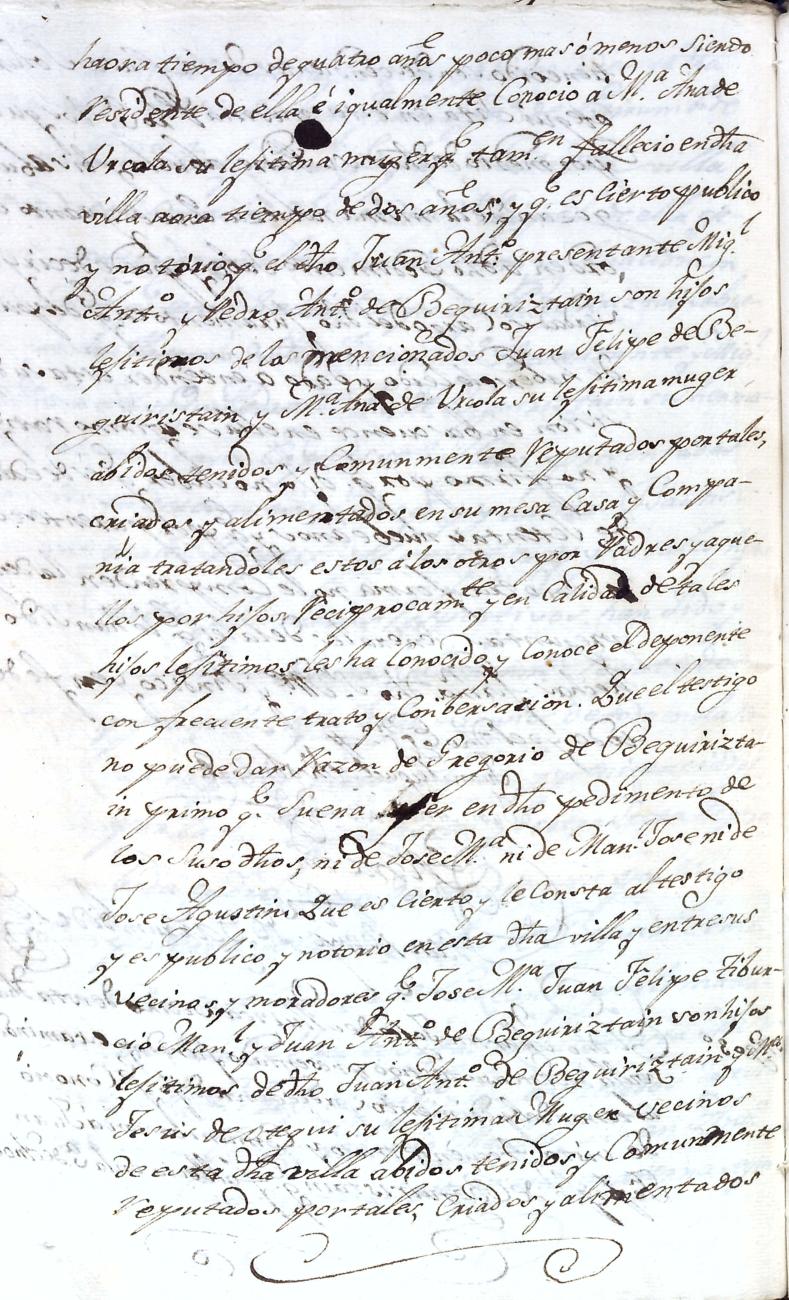 haora tiempo de quatro añs poco mas ó menos siendo
residente de ella é igualmente Conocio á Mª Ana de
Urcola su lexitima muger qe tamen fallecio en dha
villa aora tiempo de dos años; y qe es cierto publico
y notorio qe el dho Juan Anto presentante Migl
Anto y Pedro Anto de Beguiriztain son hijos
lexitimos de los mencionados Juan Felipe de Be-
guiristain y Mª Ana de Urcola su lexitima muger
abidos tenidos y Comunmente reputados por tales,
criados y alimentados en su mesa Casa y Compa-
ñia tratandoles estos á los otros por Padres y aque-
llos por hijos reciprocamte y en Calidad de tales
hijos lexitimos les ha Conocido y Conoce el deponente
con frecuente trato y Conbersacion. Que el testigo
no puede dar razon de Gregorio de Beguirizta-
in primo qe suena ser en dho pedimento de
los suso dhos, ni de Jose Mª ni de Manl Jose ni de
Jose Agustin. Que es Cierto y le Consta al testigo
y es publico y notorio en esta dha villa y entre sus
vecinos y moradores qe Jose Mª Juan Felipe Tibur-
cio Manl y Juan Anto de Beguiriztain son hijos
lexitimos de dho Juan Anto de Beguiriztain y Mª
Jesus de Otegui su lexitima Muger vecinos
de esta dha villa abidos tenidos y Comunmente
reputados por tales, Criados y alimentados